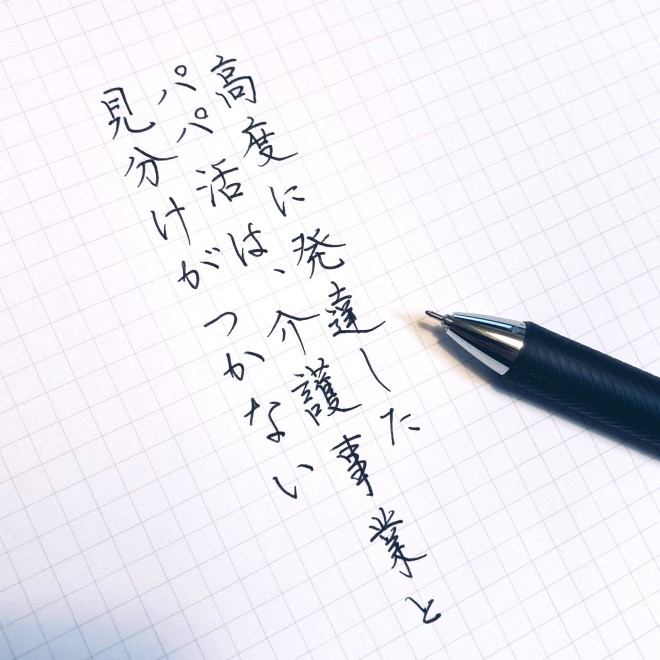 高度に発達した
パパ活は、介護事業と
見分けがつかない